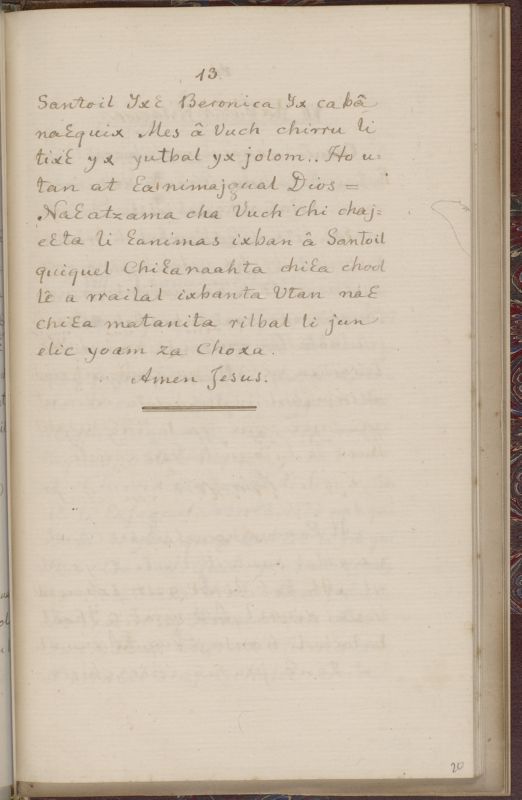 13
Santoil Yxɛ Beronica Yx cabâ
naɛquix Mes â Vuch chirru li
tixɛ yx yutbal yx jolom.. Ho u=
tan at ɛa nimajgual Dios =
Naɛatzama cha Vuch chi chaj=
eɛta li ɛanimas ixban â Santoil
quiquel Chiɛanaahta chiɛa chool
lê a rrailal ixbanta Vtan naɛ
chiɛa matanita rilbal li jun
elic yoam za Choxa.
Amen Jesus.
20